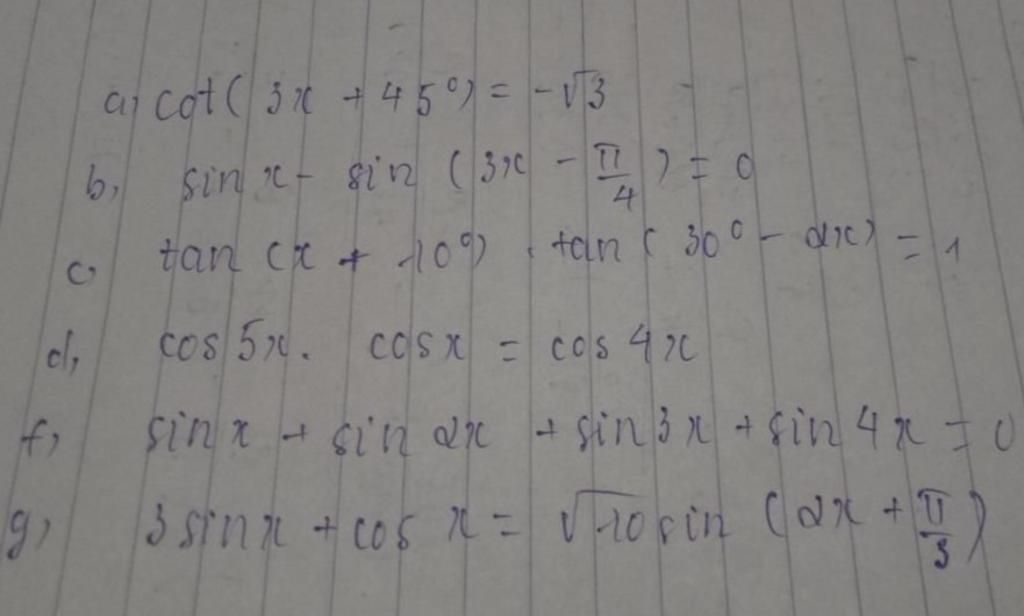 a, cot(3x + 45°) = -√3
b, sin x - sin (3x - π/4) = 0
c, tan (x + 10°) . tan(30° - 2x) = 1
d, cos 5x. cos x = cos 4x
f, sin x + sin 2x + sin 3x + sin 4x = 0
g, 3 sin x + cos x = √10 sin (2x + π/3)